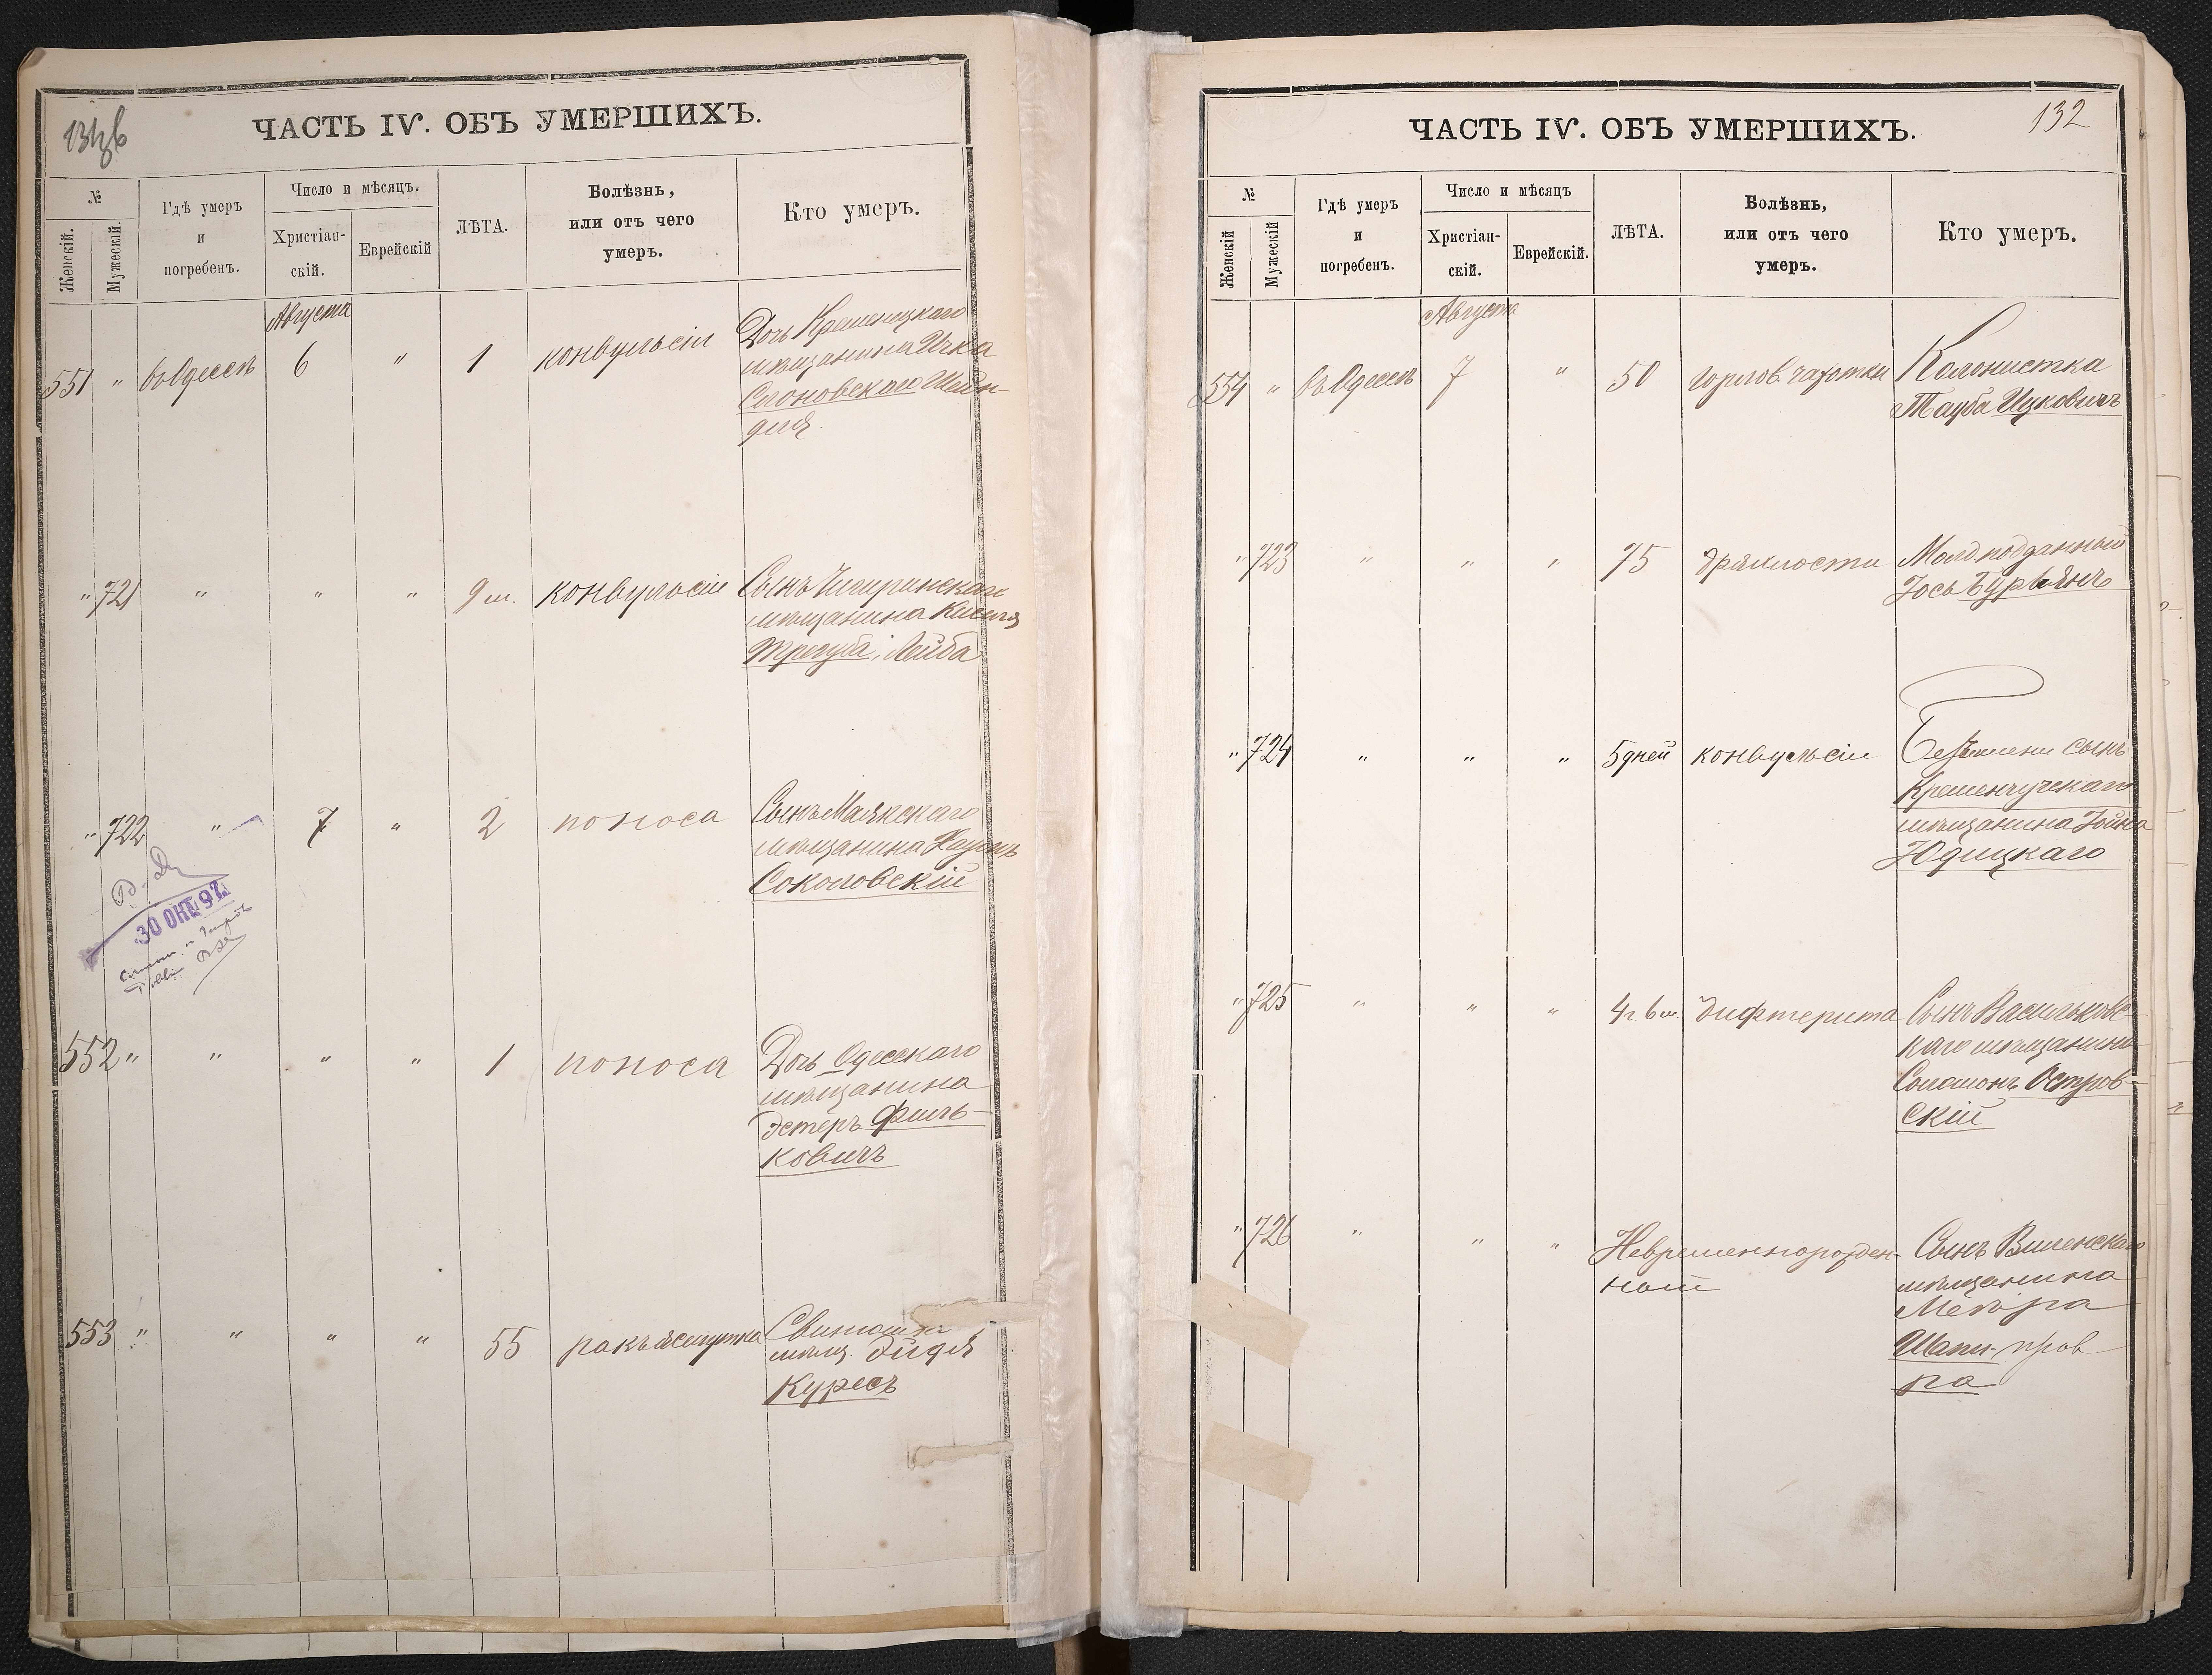 ЧАСТЬ IV. ОБЪ УМЕРШИХЪ.
№
Женскій.
Мужескій.
Гдѣ умеръ
и
погребенъ.
Число и мѣсяцъ.
Христіан-
скій.
Еврейскій
ЛѢТА.
Болѣзнь,
или отъ чего
умеръ.
Кто умеръ.
Августа
551 " въ Одессѣ 6 " 1 конвульсіи Дочь Кременецкаго
мѣщанина Ичка
Слоновскаго Шейн-
для
" 721 " " " 9 м. конвульсіи Сынъ Чигиринскаго
мѣщанина Киселя
Трегуба, Лейба
" 722 " 7 " 2 поноса Сынъ Маякскаго
мѣщанина Наумъ
Соколовскій
30 ОКТ. 92
552 " " " " 1 поноса Дочь Одесскаго
мѣщанина
Эстеръ Филь-
ковичъ
553 " " " " 55 ракъ желудка
мѣщ. Эйдля
Куресъ
132
ЧАСТЬ IV. ОБЪ УМЕРШИХЪ.
№
Женскій
Мужескій
Гдѣ умеръ
и
погребенъ.
Число и мѣсяцъ
Христіан-
скій.
Еврейскій.
ЛѢТА.
Болѣзнь,
или отъ чего
умеръ.
Кто умеръ.
Августа
554 " въ Одессѣ 7 " 50 горлов. чахотки Колонистка
Тауба Ицковичъ
" 723 " " " 75 дряхлости Молд. подданный
Іось Бурьянъ
" 724 " " " 5 дней конвульсіи Безъ имени сынъ
Кременчугскаго
мѣщанина Іойна
Юдицкаго
" 725 " " " 4 г. 6 м. дифтерита Сынъ Васильковс-
каго мѣщанина
Соломонъ Остров-
скій
" 726 " " " Невременнорожден- Сынъ Виленскаго
ный мѣщанина
Меера
Шапи-
ра